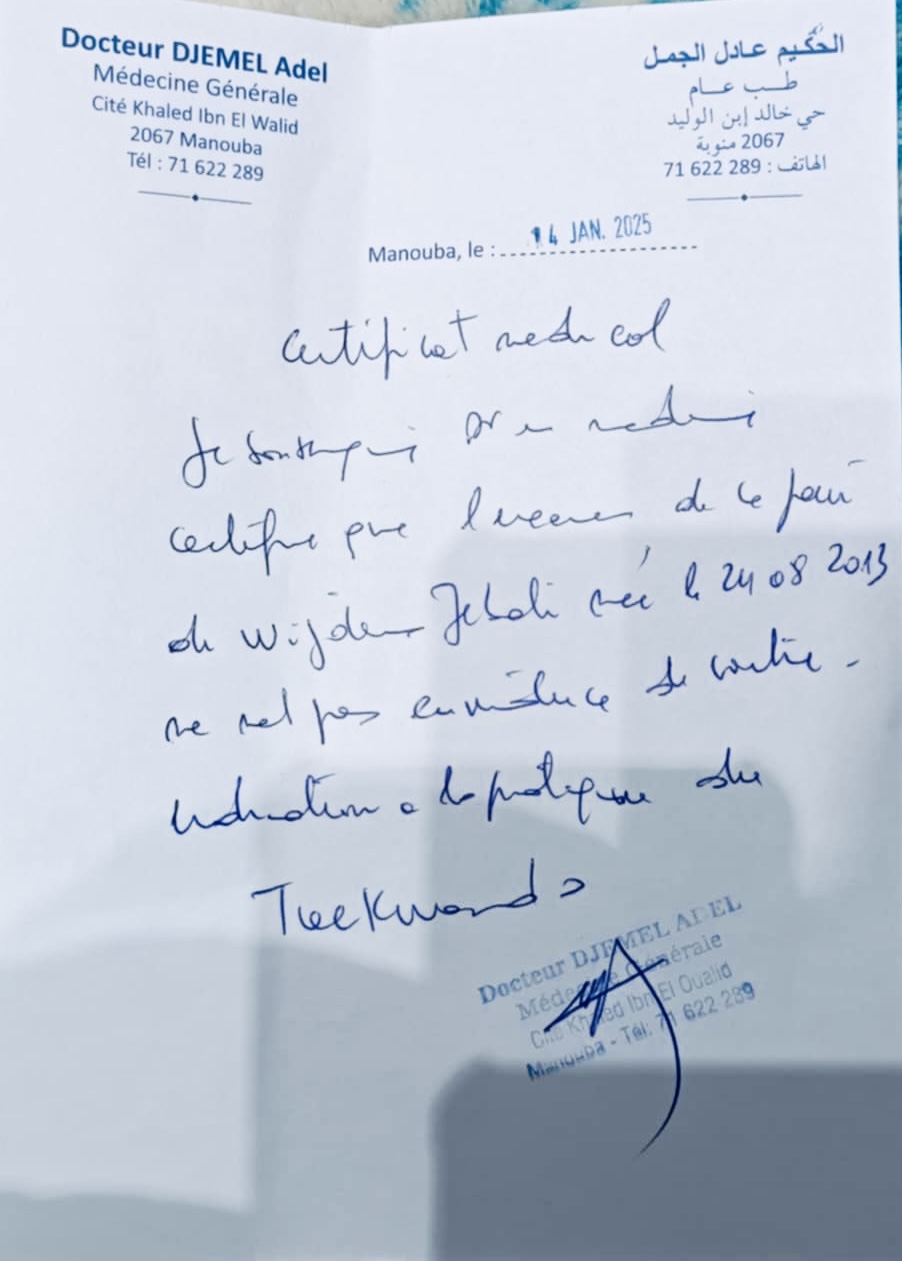 Docteur DJEMEL Adel
Médecine Générale
Cité Khaled Ibn El Walid
2067 Manouba
Tél : 71 622 289
الحكيم عادل الجمل
طب عام
حي خالد إبن الوليد
2067 منوبة
الهاتف : 289 622 71
Manouba, le : 14 JAN. 2025
Certificat medical
Je soussigné Dr en medecine
certifie que l'examen de ce jour
de Wijden Jebali née le 24 08 2013
ne met pas en evidence de contre-
indication a la pratique du
Taekwondo
Docteur DJEMEL ADEL
Médecine Générale
Cité Khaled Ibn El Oualid
Manouba - Tél: 71 622 289